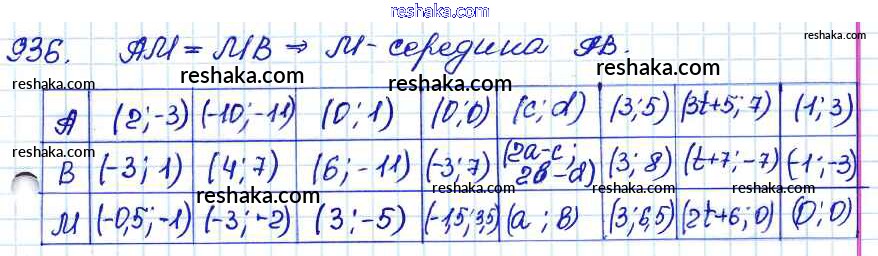 reshaka.com
936. AM = MB ⇒ M - середина AB.
reshaka.com reshaka.com reshaka.com reshaka.com
A (2;-3) (-10;-11) (0;1) (0;0) (c;d) (3;5) (3t+5;7) (1;3)
reshaka.com reshaka.com reshaka.com reshaka.com
B (-3;1) (4;7) (6;-11) (-3;7) (2a-c; 2b-d) (3;8) (t+7;-7) (-1;-3)
reshaka.com reshaka.com reshaka.com reshaka.com
M (-0,5;-1) (-3;-2) (3;-5) (-1,5;3,5) (a;b) (3;6,5) (2t+6;0) (0;0)
reshaka.com reshaka.com reshaka.com